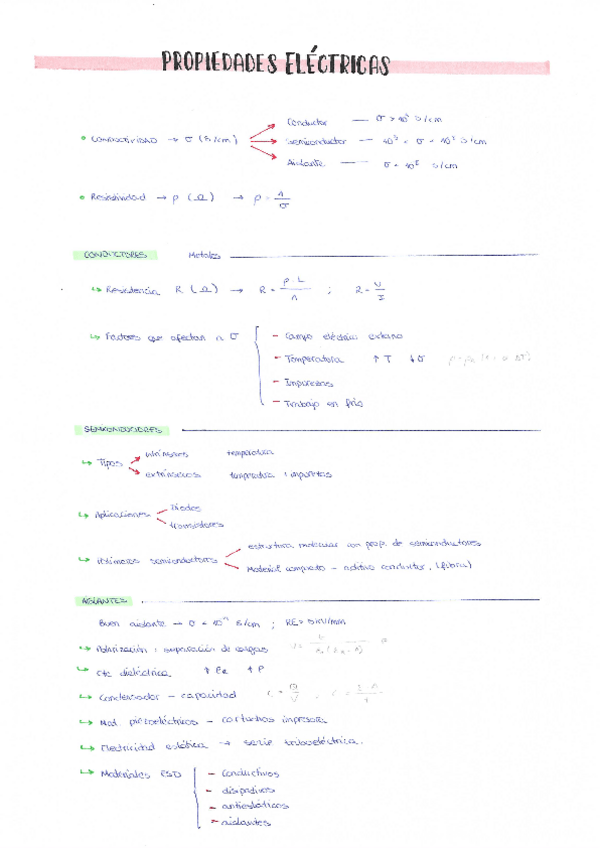 PROPIEDADES ELÉCTRICAS
Conductor — σ > 10 S/cm
CONDUCTIVIDAD → σ (S/cm)
Semiconductor — < σ < S/cm
Aislante — σ S/cm
Resistividad → ρ (Ω) → ρ = 1/σ
CONDUCTORES Metales
Resistencia R (Ω) → R = ρ·L/A ; R = V/I
Factores que afectan a σ
- Campo eléctrico externo
- Temperatura ↑T ↓σ
- Impurezas
- Trabajo en frío
SEMICONDUCTORES
Tipos
intrínsecos temperatura
extrínsecos temperatura impurezas
Aplicaciones
transistores
Polímeros semiconductores
estructura molecular con prop. de semiconductores
Material compuesto - aditivo conductor (fibra)
AISLANTES
Buen aislante → S/cm ; KV/mm
Polarización: separación de cargas
Cte dieléctrica ↑ ↑
Condensador - capacidad C = Q/V
Mat. piezoeléctricos - cartuchos impresora
Electricidad estática → serie triboeléctrica.
Materiales ESD
- Conductivos
- disipativos
- antiestáticos
- aislantes